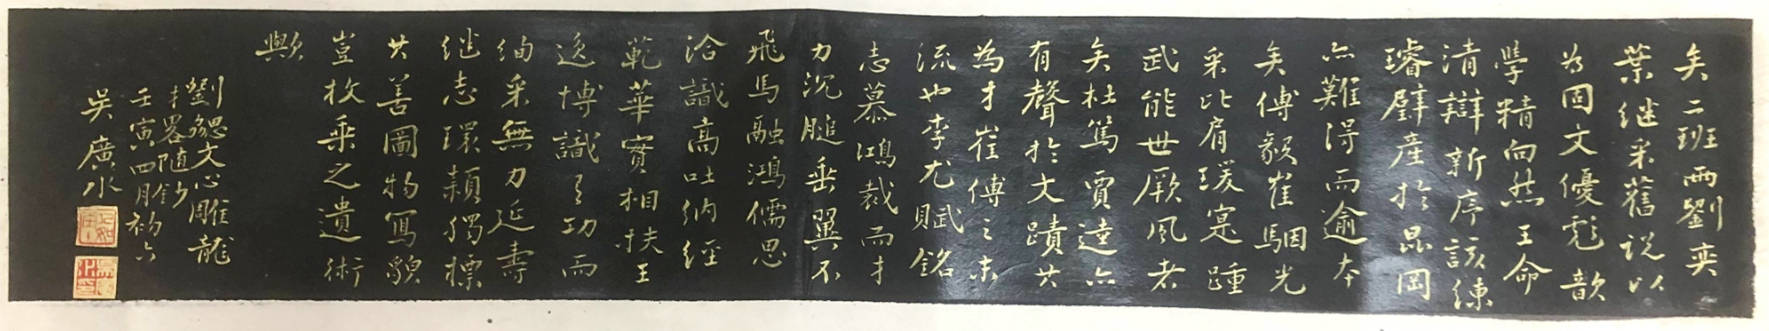 矣二班两劉奕
葉继采舊説以
为固文優彪歆
學精向然王命
清辯新序該練
璿璧産於昆岡
亦難得而逾本
矣傅毅崔駰光
采比肩瑗寔踵
武能世厥風者
矣杜篤賈逵亦
有聲於文蹟其
為才崔傅之末
流也李尤賦銘
志慕鴻裁而才
力沉膇垂翼不
飛馬融鴻儒思
洽識高吐納經
範華實相扶王
逸博識有功而
絢采無力延壽
继志瓌穎獨標
其善圖物寫貌
豈枚乘之遺術
歟
劉勰文心雕龍
才畧随鈔
壬寅四月初六
吴廣水